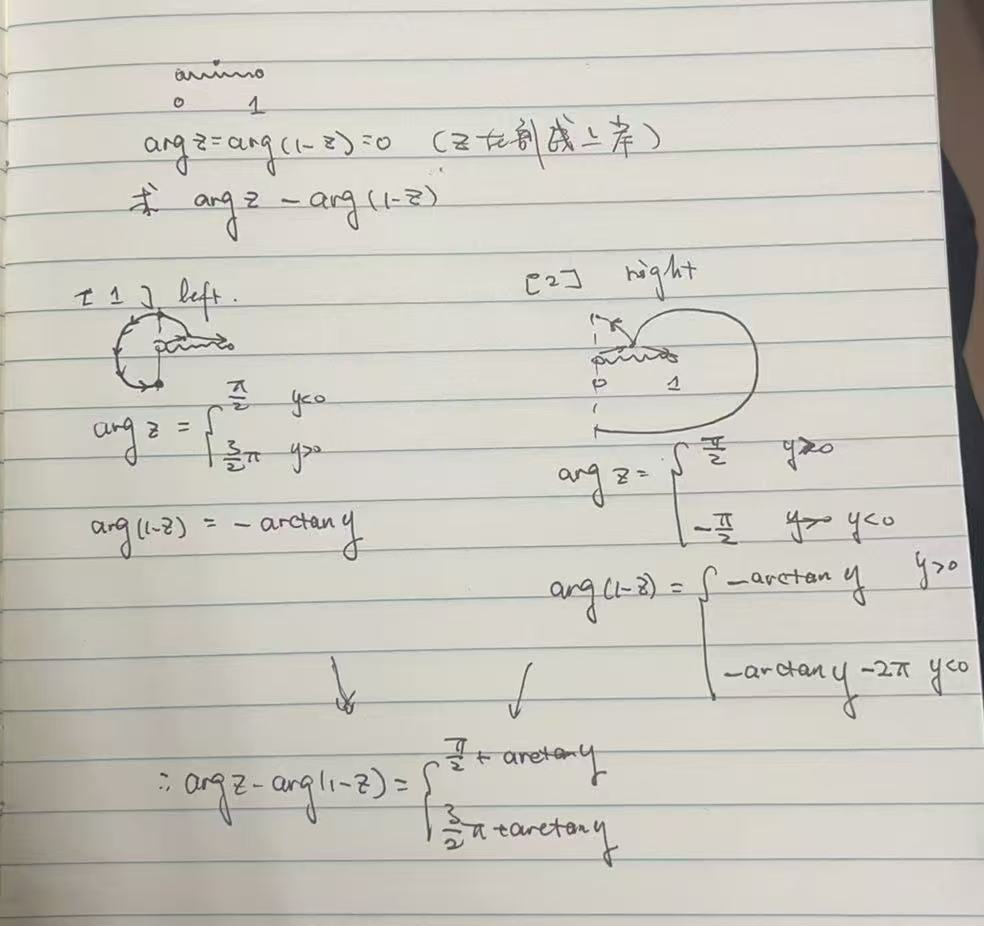 0 1
arg z = arg(1-z) = 0 (z在割线上岸)
求 arg z - arg(1-z)
[1] left.
arg z = { π/2 y<0
3/2 π y>0
arg(1-z) = - arctan y
[2] right
0 1
arg z = { π/2 y>0
-π/2 y<0
arg(1-z) = { -arctan y y>0
-arctan y - 2π y<0
∴ arg z - arg(1-z) = { π/2 + arctan y
3/2 π + arctan y